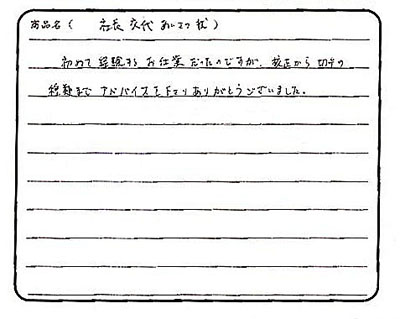 商品名( 社長交代あいさつ状 )
初めて経験するお仕事だったのですが、校正から切手の
種類までアドバイスを下さりありがとうございました。